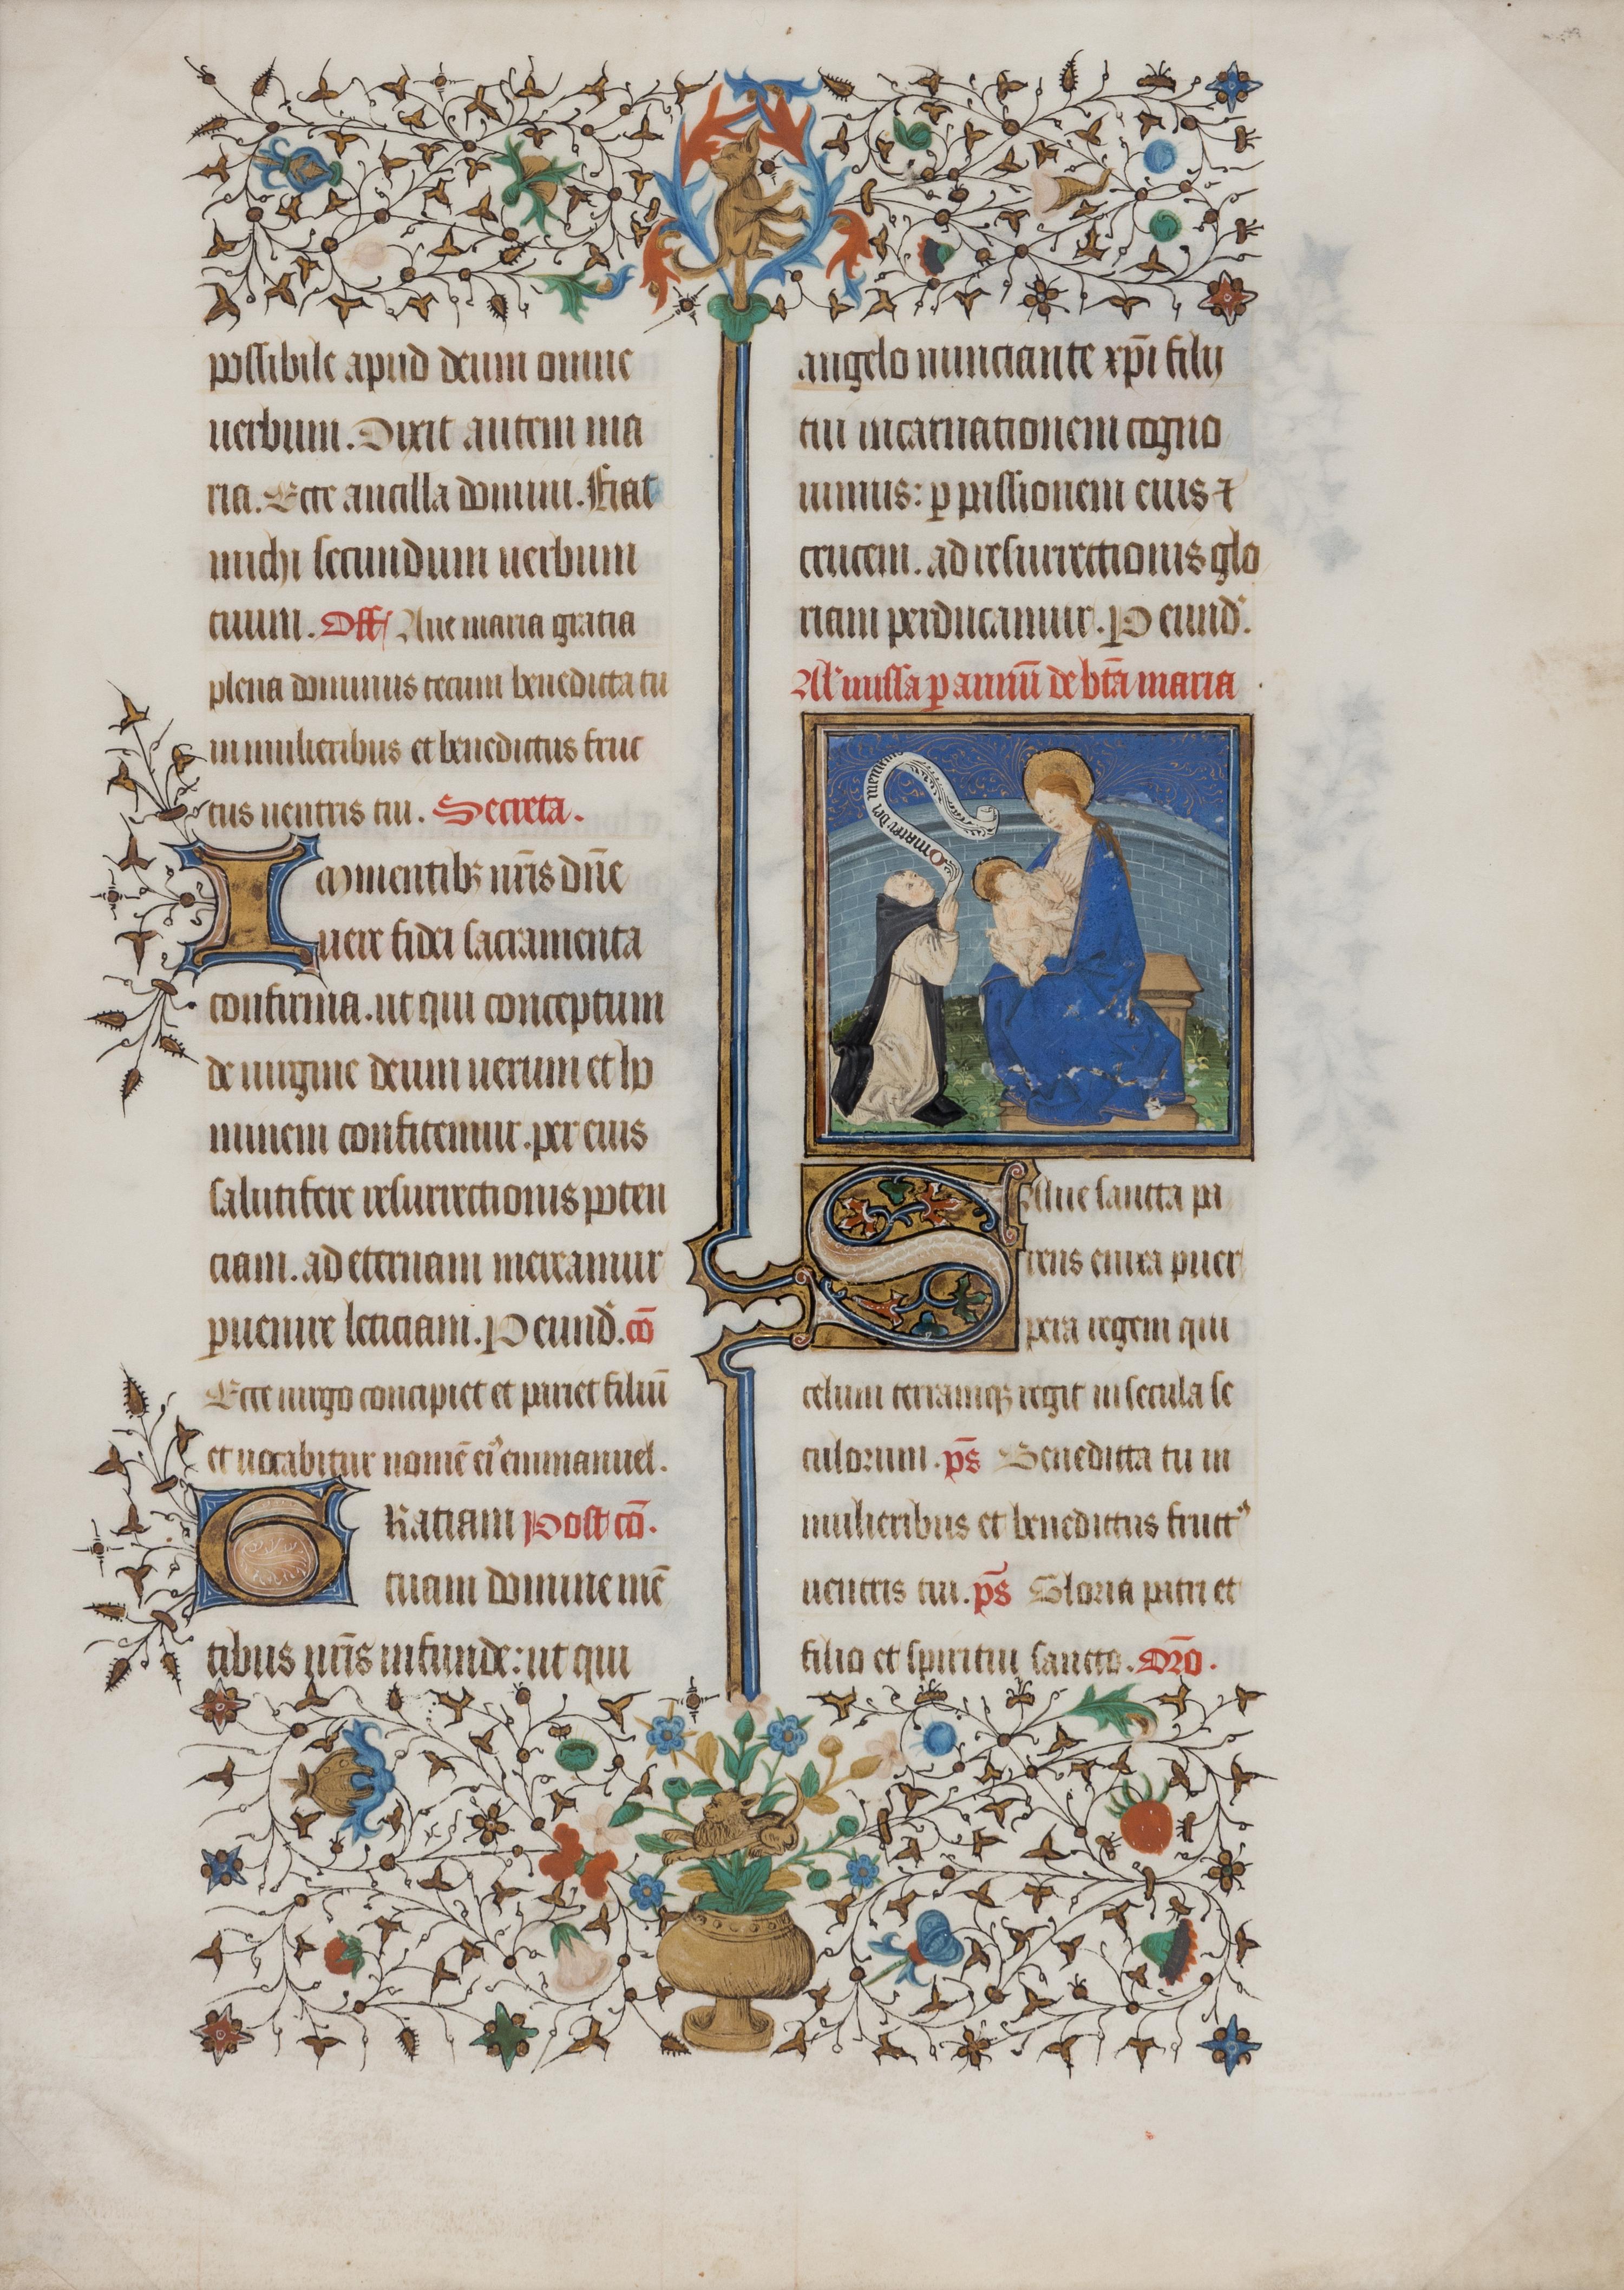 possibile apud deum omne
uerbum. Dixit autem ma
ria. Ecce ancilla domini. Fiat
michi secundum uerbum
tuum. Off Aue maria gratia
plena dominus tecum benedicta tu
in mulieribus et benedictus fruc
tus uentris tui. Secreta.
IN mentibꝫ nr̄is dn̄e
uere fidei sacramenta
confirma. ut qui conceptum
de uirgine deum uerum et ho
minem confitemur. per eius
salutifere resurrectionis poten
ciam. ad eternam mereamur
ꝑuenire leticiam. P eund̄. cō
Ecce uirgo concipiet et pariet filiū
et uocabitur nomē eiꝰ emmanuel.
GRatiam Post cō.
tuam domine mē
tibus nr̄is infunde: ut qui
angelo nunciante xp̄i filij
tui incarnationem cogno
uimus: ꝑ passionem eius ⁊
crucem. ad resurrectionis glo
riam perducamur. P eund̄.
Al' missa ꝑ annū de bt̄a maria
O mater dei memento
SAlue sancta pa
rens enixa puer
pera regem qui
celum terramqꝫ regit in secula se
culorum. ps̄ Benedicta tu in
mulieribus et benedictus fructꝰ
uentris tui. ps̄ Gloria patri et
filio et spiritui sancto. Or̄o.